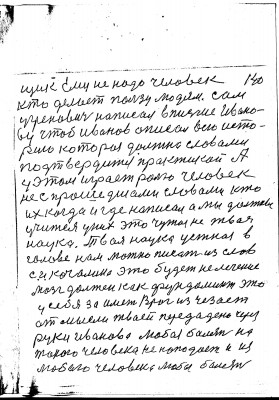 щик Ему не надо человек 130
кто делает ползу людям. Сам
написал Ивано-
ву чтоб Иванов описал всю исто-
рию которая должна словами
подтвердится практикай А
у этом играет ролю человек
не с прошедшами словами кто
их когда и где написал а мы должны
учится у них это чужая не твая
наука. Твая наука устная в
голове нам можно писат из слов
это будет не лечение
мозг должен как фундамент это
у себя за имет Враг из чезает
от мысли твоей передадено чуя
руки Иванова любая болят на
такого человека не нападает и из
любого человека люба болят